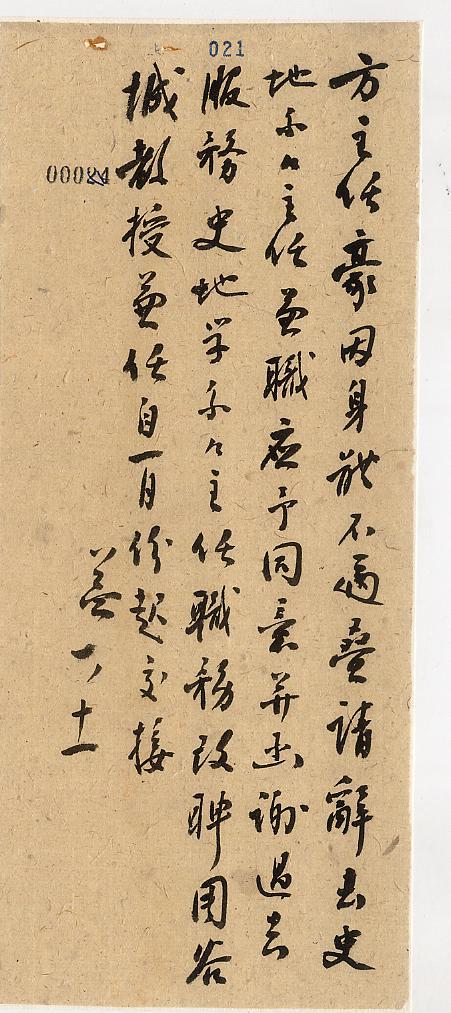 方主任豪因身體不適疊請辭去史
地系々主任兼職应予同意并函謝過去
服務史地学系々主任職務改聘周谷
城教授兼任自一月份起交接
益 一、十一
021
00084